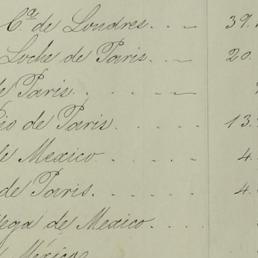 Cª de Londres . . . 39.
Locke de Paris . . 20.
de Paris . . .
de Paris . . . . . 13.
de Mexico . . . . 4.
de Paris . . . . . 4.
de Mexico . . . .